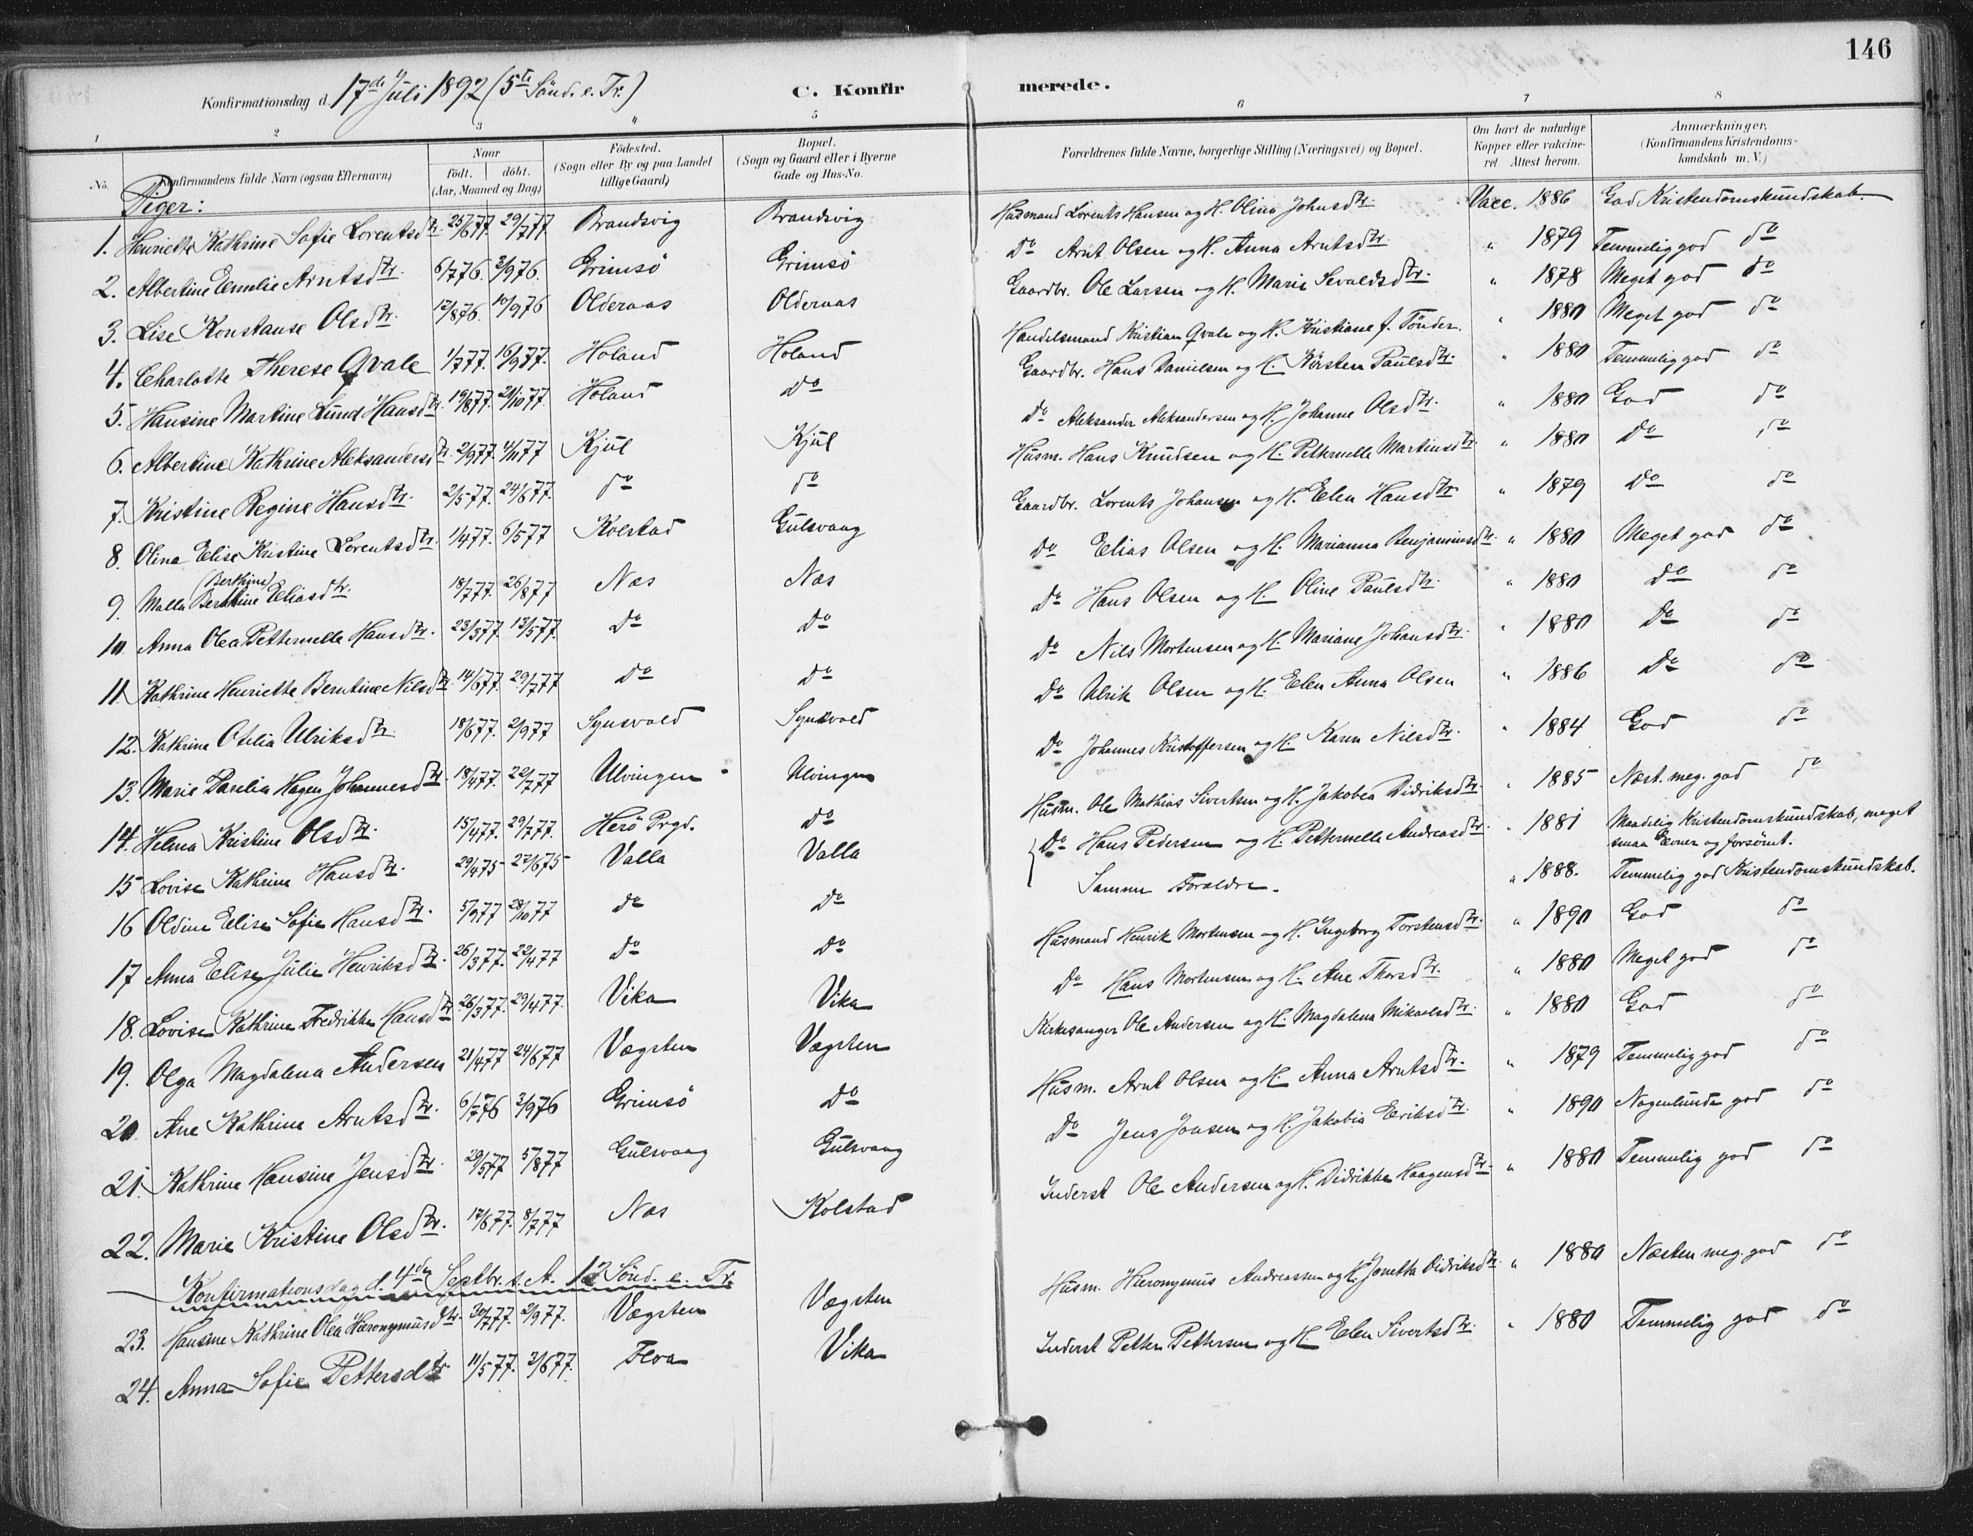 146
Konfirmationsdag d. 17de Juli 1892 (5te Sönd. e. Tr.) C. Konfirmerede.
1 2 3 4 5 6 7 8
No. Konfirmandens fulde Navn (ogsaa Efternavn) Naar født. døbt. (Aar, Maaned og Dag) Fødested. (Sogn eller By og paa Landet tillige Gaard) Bopæl. (Sogn og Gaard eller i Byerne Gade og Hus-No. Forældrenes fulde Navne, borgerlige Stilling (Næringsvei) og Bopæl. Om havt de naturlige Kopper eller vaccineret. Attest herom. Anmærkninger. (Konfirmandens Kristendomskundskab m. V.)
Piger:
1. Henriette Kathrine Sofie Lorentsdtr. 25/6 77 29/7 77 Brandsvig Brandsvig Husmand Lorents Hansen og H. Olina Johnsdtr. Vacc. 1886 God Kristendomskundskab.
2. Albertine Emilie Arntsdtr. 6/7 76. 3/9 76. Grimsö Grimsö Do Arnt Olsen og H. Anna Arntsdtr. " 1879 Temmelig god do
3. Lise Konstanse Olsdtr. 12/8 76. 10/9 76 Olderaas Olderaas Gaardbr. Ole Larsen og H. Marie Sevaldsdtr. " 1878 Meget god do
4. Charlotte Therese Qvale 1/7 77. 16/9 77. Holand Holand Handelsmand Kristian Qvale og H. Kristiane f. Tönder. " 1880 Meget god do
5. Hansine Martine Lund Hansdtr. 19/8 77. 21/10 77. Holand Do Gaardbr. Hans Danielsen og H. Kirsten Paulsdtr. " 1880 Temmelig god do
6. Albertine Kathrine Aleksandersdtr. 2/9 77. 4/11 77 Kjul Kjul do Aleksander Aleksandersen og H. Johanne Olsdtr. " 1880 God do
7. Kristine Regine Hansdtr. 2/5 77. 24/6 77. do do Husm. Hans Knudsen og H. Petternelle Martinsdtr. " 1880 Do do
8. Olina Elise Kristine Lorentsdtr. 1/4 77. 6/5 77 Kolstad Gulsvaag Gaardbr. Lorents Johansen og H. Elen Hansdtr. " 1879 Do do
9. Malla Berthine (Berthine) Eliasdtr. 18/7 77. 26/8 77 Næs Næs Do Elias Olsen og H. Marianna Benjaminsdtr. " 1880 Meget god do
10. Anna Olea Petternelle Hansdtr. 23/3 77. 13/5 77. Do Do Do Hans Olsen og H. Oline Paulsdtr. " 1880 Do do
11. Kathrine Henriette Berntine Nilsdtr. 14/6 77. 29/7 77 Do Do Do Nils Mortensen og H. Mariane Johansdtr. " 1880 Do do
12. Kathrine Otilia Ulriksdtr. 18/6 77. 2/9 77 Synsvold Synsvold Do Ulrik Olsen og H. Elen Anna Olsen " 1886 Do do
13. Marie Parelia Hagen Johannesdtr. 18/4 77. 22/7 77 Ulvingen Ulvingen Do Johannes Kristoffersen og H. Karen Nilsdtr. " 1884 God do
14. Helma Kristine Olsdtr. 15/4 77. 29/7 77. Herö Prgd. Do Husm. Ole Mathias Sivertsen og H. Jakobea Didriksdtr. " 1885 Næst. meg. god do
15 Lovise Kathrine Hansdtr. 29/4 75 27/6 75 Valla Valla Do Hans Pedersen og H. Petternelle Andreasdtr. " 1881 Maadelig Kristendomskundskab, meget smaa Evner og forsömt.
16 Oldine Elise Sofie Hansdtr. 5/9 77 28/10 77 do do Samme Foreldre. " 1888. Temmelig god Kristendomskundskab.
17 Anna Elise Julie Henriksdtr. 26/3 77. 22/4 77 do do Husmand Henrik Mortensen og H. Ingeborg Torstensdtr. " 1890 God do
18. Lovise Kathrine Fredrikke Hansdtr. 26/3 77. 29/4 77. Vika Vika Do Hans Mortensen og H. Ane Thorsdtr. " 1880 Meget god do
19. Olga Magdalena Andersen 21/4 77 24/6 77 Vægsten Vægsten Kirkesanger Ole Andersen og H. Magdalena Mikaelsdtr. " 1880 God do
20. Ane Kathrine Arntsdtr. 6/7 76 3/9 76 Grimsö Do Husm. Arnt Olsen og H. Anna Arntsdtr. " 1879 Temmelig god do
21. Kathrine Hansine Jensdtr. 29/5 77 5/8 77 Gulsvaag Gulsvaag Do Jens Jonsen og H. Jakobia Eriksdtr. " 1890 Nogenlunde god do
22. Marie Kristine Olsdtr. 17/6 77. 8/7 77 Næs Kolstad Inderst Ole Andersen og H. Didrikke Haagensdtr. " 1880 Temmelig god do
Konfirmationsdag d. 4de Septbr. s. A. 12 Sönd. e. Tr.
23. Hansine Kathrine Olea Hieronymusdtr. 30/7 77. 2/9 77. Vægsten Vægsten Husm. Hieronymus Andreassen og H. Jonetta Didriksdtr. " 1880 Næsten meg. god do
24. Anna Sofie Pettersdtr 11/5 77. 3/6 77. Flva Vika Inderst Petter Pettersen og H. Elen Sivertsdtr. " 1880 Temmelig god do